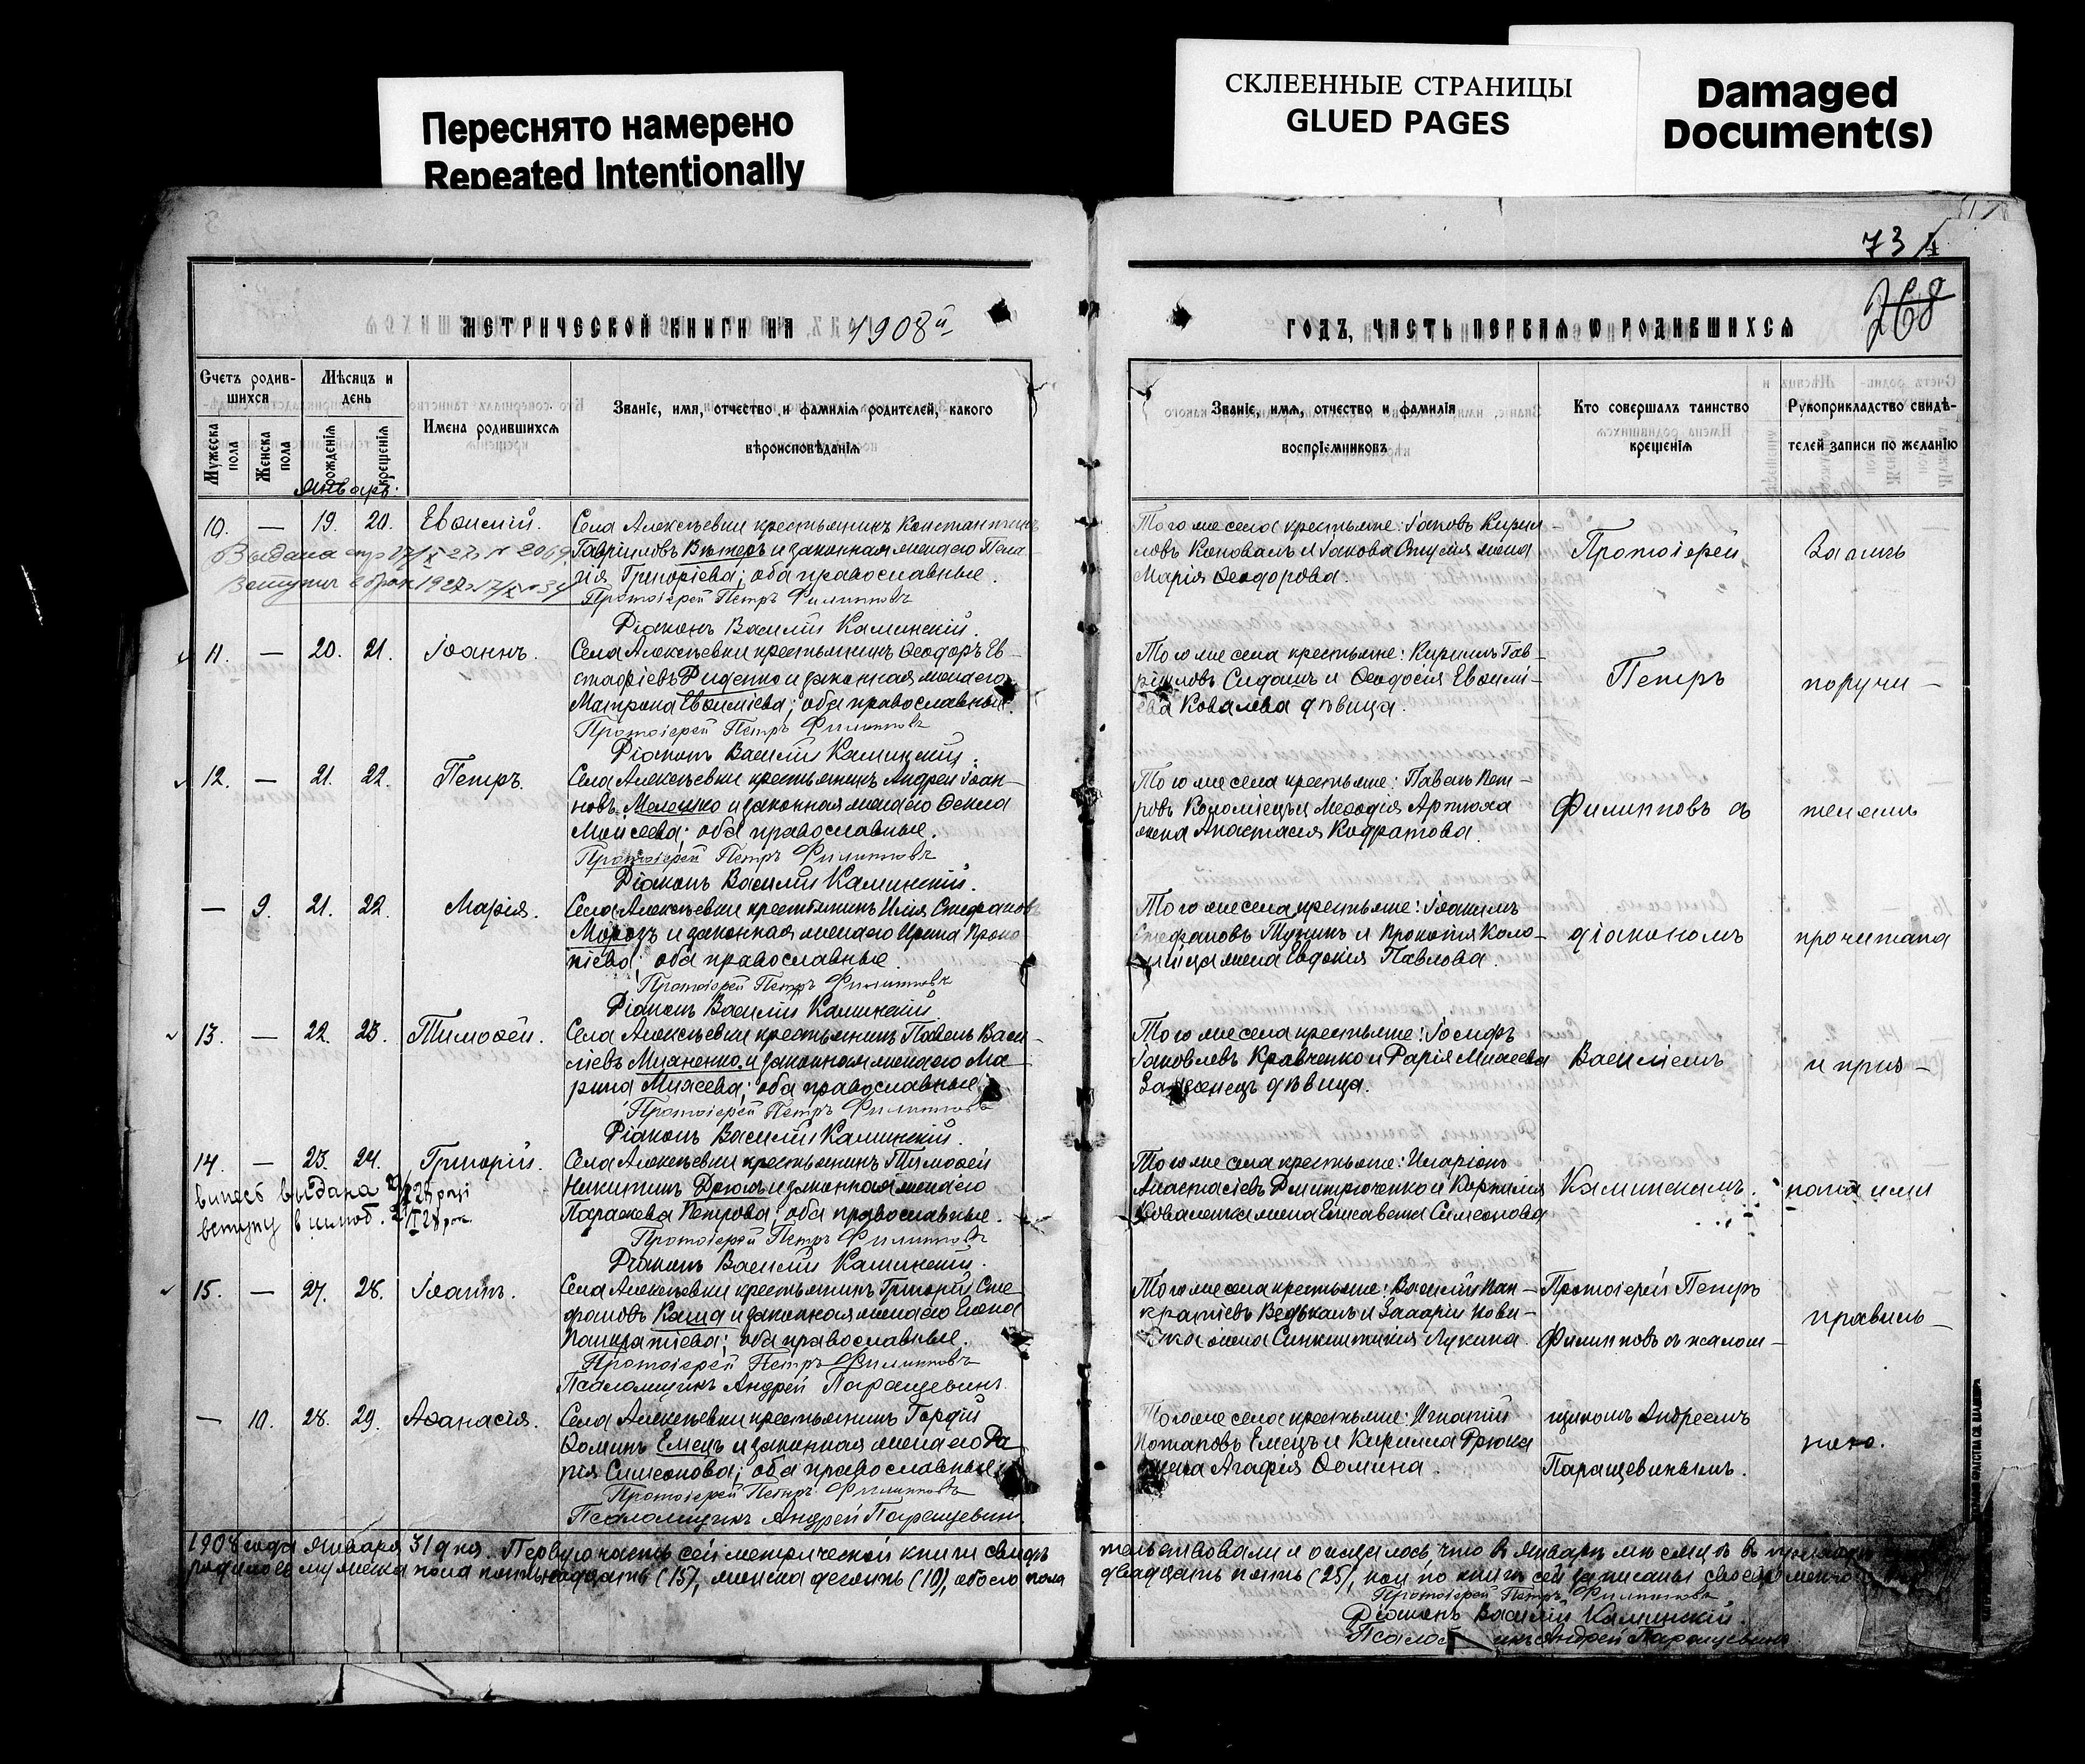 Переснято намерено
Repeated Intentionally
СКЛЕЕННЫЕ СТРАНИЦЫ
GLUED PAGES
Damaged
Document(s)
73
4
268
МЕТРИЧЕСКОЙ КНИГИ НА 1908й
ГОДЪ, ЧАСТЬ ПЕРВАЯ О РОДИВШИХСЯ
Счетъ родив-
шихся
Мужеска пола
Женска пола
Мѣсяцъ и
день
рожденія
крещенія
Имена родившихся
Званіе, имя, отчество и фамилія родителей, какого
вѣроисповѣданія
Званіе, имя, отчество и фамилія
воспріемниковъ
Кто совершалъ таинство
крещенія
Рукоприкладство свидѣ-
телей записи по желанію
Январь.
10. — 19. 20. Евѳимій.
Села Алексѣевки крестьянинъ Константинъ
Гавріиловъ Вѣтеръ и законная жена его Пела-
гія Григоріева; оба православные.
Протоіерей Петръ Филипповъ
Діаконъ Василій Каминскій.
Того же села крестьяне: Іаковъ Кирил-
ловъ Коновалъ и Іакова жена
Марія Ѳеодорова.
Выдана
11. — 20. 21. Іоаннъ.
Села Алексѣевки крестьянинъ Ѳеодоръ Ев-
стафіевъ Руденко и законная жена его
Матрона Евѳиміева; оба православные.
Протоіерей Петръ Филипповъ
Діаконъ Василій Каминскій.
Того же села крестьяне: Кириллъ Гав-
ріиловъ Сидашъ и Ѳеодосія Евѳимі-
ева Ковалева дѣвица.
12. — 21. 22. Петръ.
Села Алексѣевки крестьянинъ Андрей Іоан-
новъ Мелешко и законная жена его Ѳекла
Моисеева; оба православные.
Протоіерей Петръ Филипповъ
Діаконъ Василій Каминскій.
Того же села крестьяне: Павелъ Пет-
ровъ Коломіецъ и Меѳодія Артюха
жена Анастасія Кодратова.
— 9. 21. 22. Марія.
Села Алексѣевки крестьянинъ Илія Стефановъ
Морозъ и законная жена его Ирина Проко-
піева; оба православные.
Протоіерей Петръ Филипповъ
Діаконъ Василій Каминскій.
Того же села крестьяне: Іоакимъ
Стефановъ и Прокопія Коло-
жена Евдокія Павлова.
13. — 22. 23. Тимоѳей.
Села Алексѣевки крестьянинъ Павелъ Васи-
ліевъ и законная жена его Ма-
рина; оба православные.
Протоіерей Петръ Филипповъ
Діаконъ Василій Каминскій.
Того же села крестьяне: Іосифъ
Іаковлевъ Кравченко и Дарія
дѣвица.
14. — 23. 24. Григорій.
Села Алексѣевки крестьянинъ Тимоѳей
Никитинъ Дрюкъ и законная жена его
Параскева Петрова; оба православные.
Протоіерей Петръ Филипповъ
Діаконъ Василій Каминскій.
Того же села крестьяне: Иларіонъ
Анастасіевъ Дмитрюченко и Корнилія
Коваленка жена Елисавета Симеонова
15. — 27. 28. Іоаннъ.
Села Алексѣевки крестьянинъ Григорій Сте-
фановъ Каша и законная жена его Елена
Панкратіева; оба православные.
Протоіерей Петръ Филипповъ
Псаломщикъ Андрей Паращевинъ.
Того же села крестьяне: Василій Пан-
кратіевъ Ведькалъ и Захарія Нови-
жена Синклитикія Лукина.
— 10. 28. 29. Аѳанасія.
Села Алексѣевки крестьянинъ Гордій
Ѳоминъ Емецъ и законная жена его Да-
рія Симеонова; оба православные.
Протоіерей Петръ Филипповъ
Псаломщикъ Андрей Паращевинъ.
Того же села крестьяне: Игнатій
Потаповъ Емецъ и Кирилла Дрюка
жена Агафія Ѳомина.
Протоіерей
Петръ
Филипповъ съ
діакономъ
Василіемъ
Каминскимъ.
Протоіерей Петръ
Филипповъ съ псалом-
щикомъ Андреемъ
Паращевинымъ.
Запись
поручи-
телями
прочитана
и приз-
нана ими
правиль-
ною.
1908 года Января 31 дня. Первую часть сей метрической книги свидѣ-
тельствовали и оказалось, что въ Январѣ мѣсяцѣ въ приходѣ
родилось мужеска пола пятьнадцать (15), женска десять (10), обоего пола
двадцать пять (25), кои по книгѣ сей записаны своевременно
Протоіерей Петръ Филипповъ
Діаконъ Василій Каминскій.
Андрей Паращевинъ